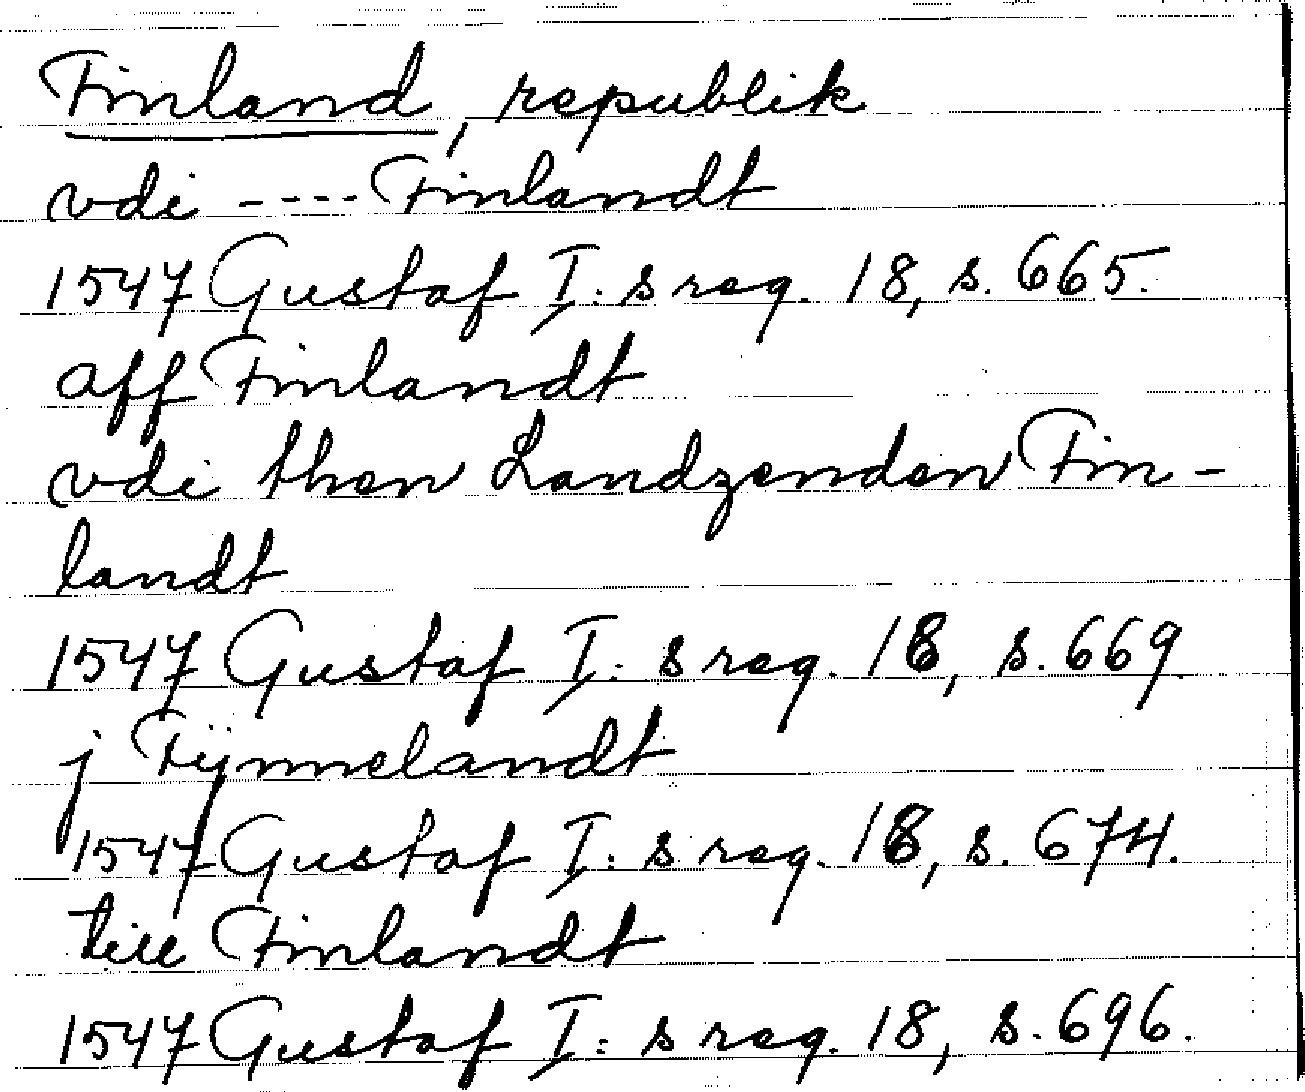 Finland, republik
vdi ---- Finlandt
1547 Gustaf I:s reg. 18, s. 665.
aff Finlandt
vdi then Landzenden Fin-
landt
1547 Gustaf I:s reg. 18, s. 669.
j Fÿnnelandt
1547 Gustaf I:s reg. 18, s. 674.
till Finlandt
1547 Gustaf I:s reg. 18, s. 696.